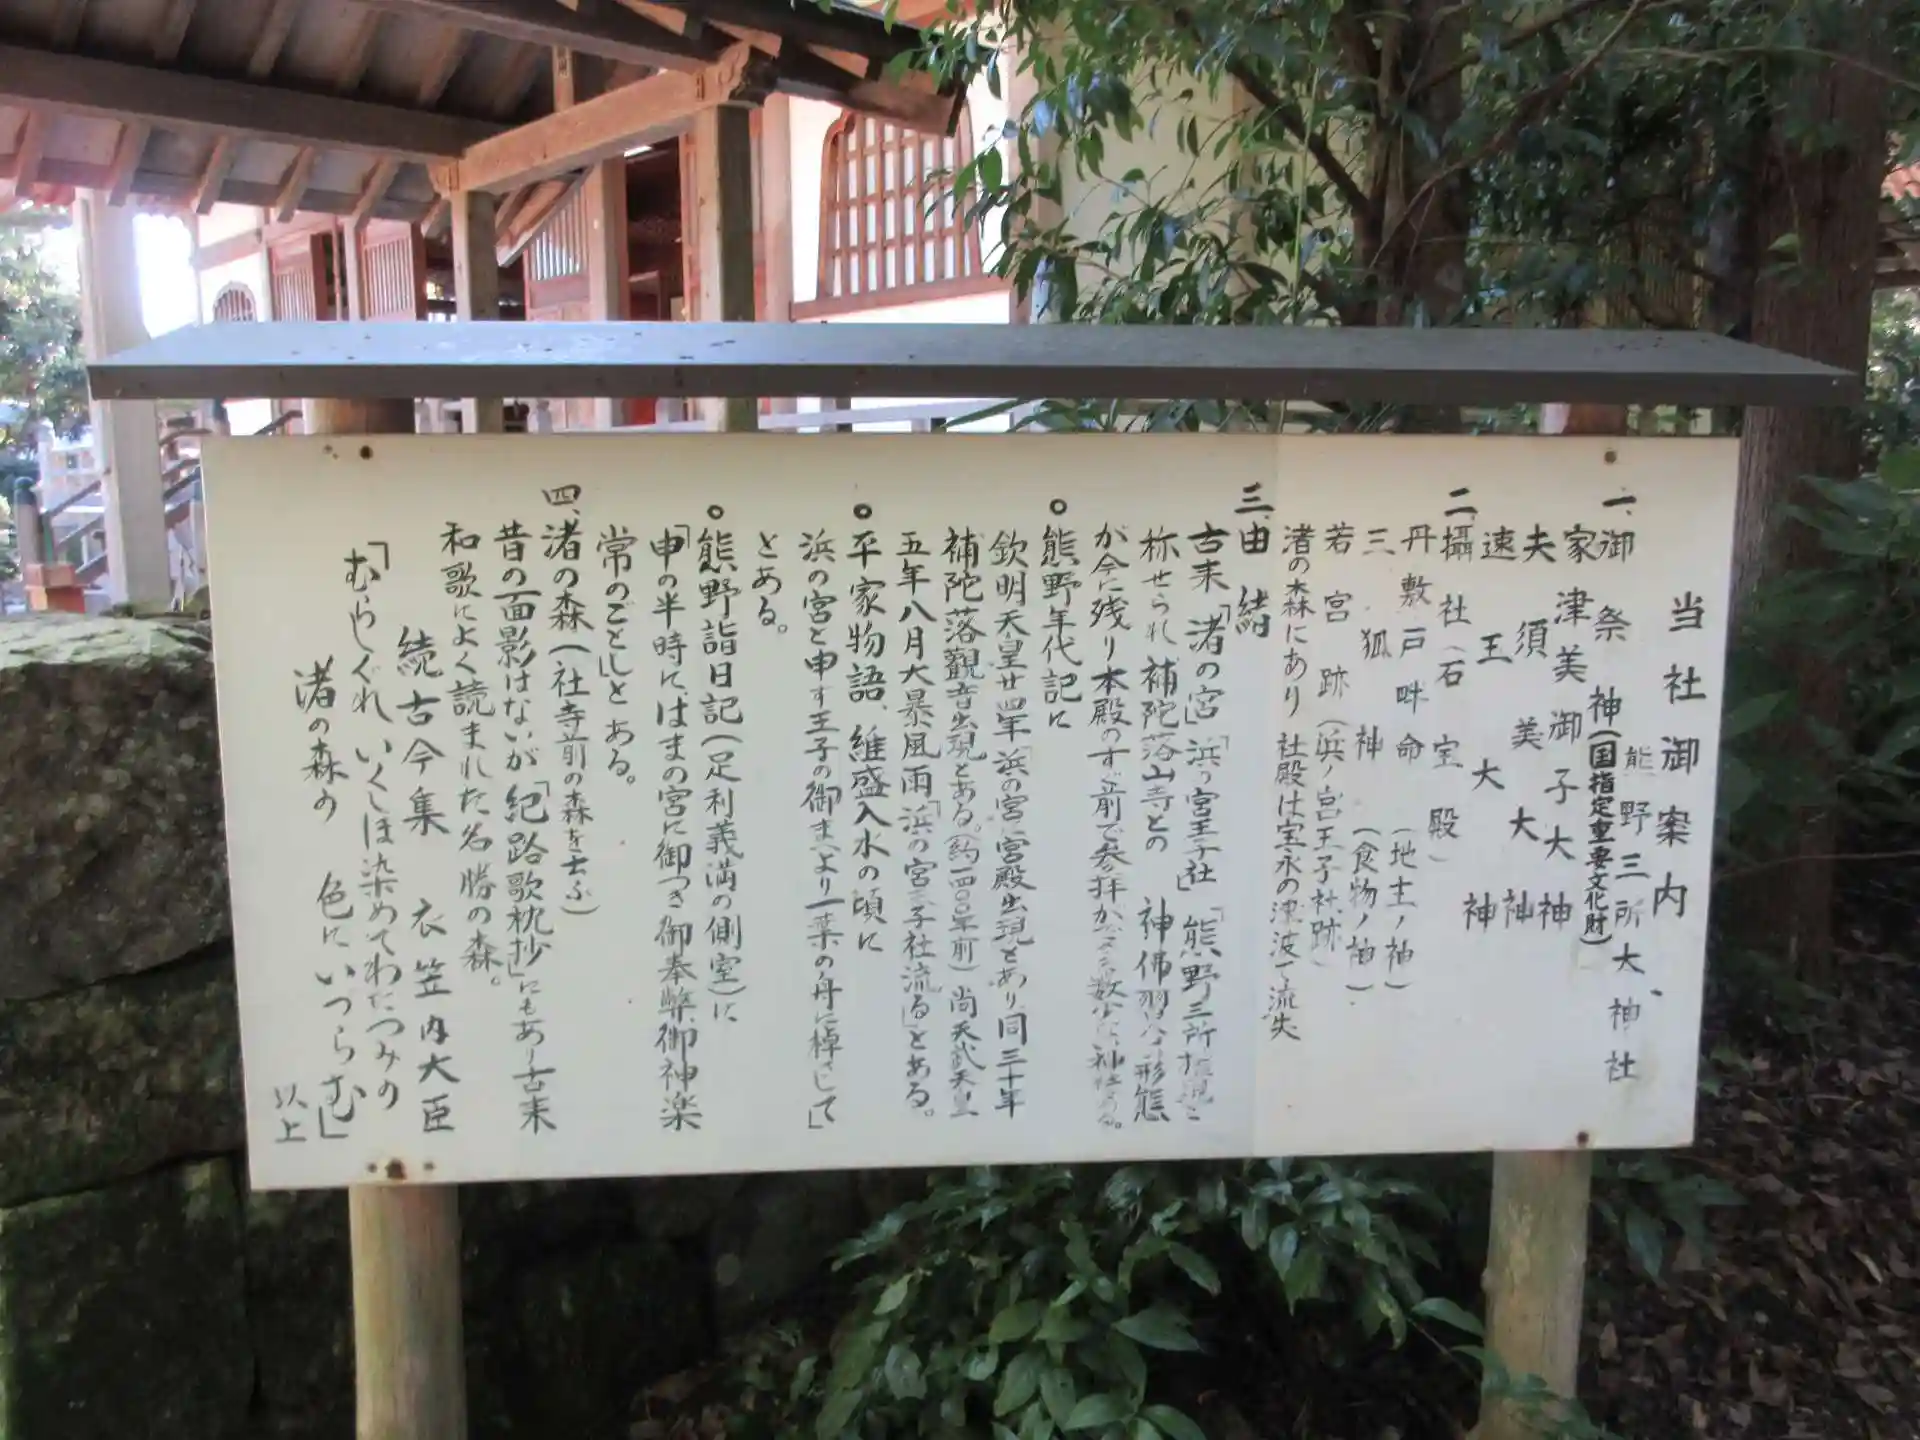 当社御案内
熊野三所大神社
一、御祭神(国指定重要文化財)
家津美御子大神
夫須美大神
速玉大神
二、攝社(石宝殿)
丹敷戸畔命(地主ノ神)
三狐神(食物ノ神)
若宮跡(浜ノ宮王子社跡)
渚の森にあり 社殿は宝永の津波で流失
三、由緒
古来「渚の宮」「浜ノ宮王子社」「熊野三所権現」と
称せられ補陀落山寺との神佛習合の形態
が今に残り本殿のすぐ前で参拝ができる数少ない神社である。
○熊野年代記に
欽明天皇廿四年「浜の宮」宮殿出現とあり、同三十年
補陀落観音出現とある。(約一四〇〇年前)尚天武天皇
五年八月大暴風雨「浜の宮王子社流る」とある。
○平家物語、維盛入水の頃に
浜の宮と申す王子の御まへより一葉の舟に棹さして」
とある。
○熊野詣日記(足利義満の側室)に
「申の半時に、はまの宮に御つき御奉幣、御神楽
常のごとし」とある。
四、渚の森(社寺前の森を云ふ)
昔の面影はないが「紀路歌枕抄」にもあり古来
和歌によく読まれた名勝の森。
続古今集 衣笠内大臣
「むらしぐれ いくしほ染めてわたつみの
渚の森の 色にいづらむ」
以上